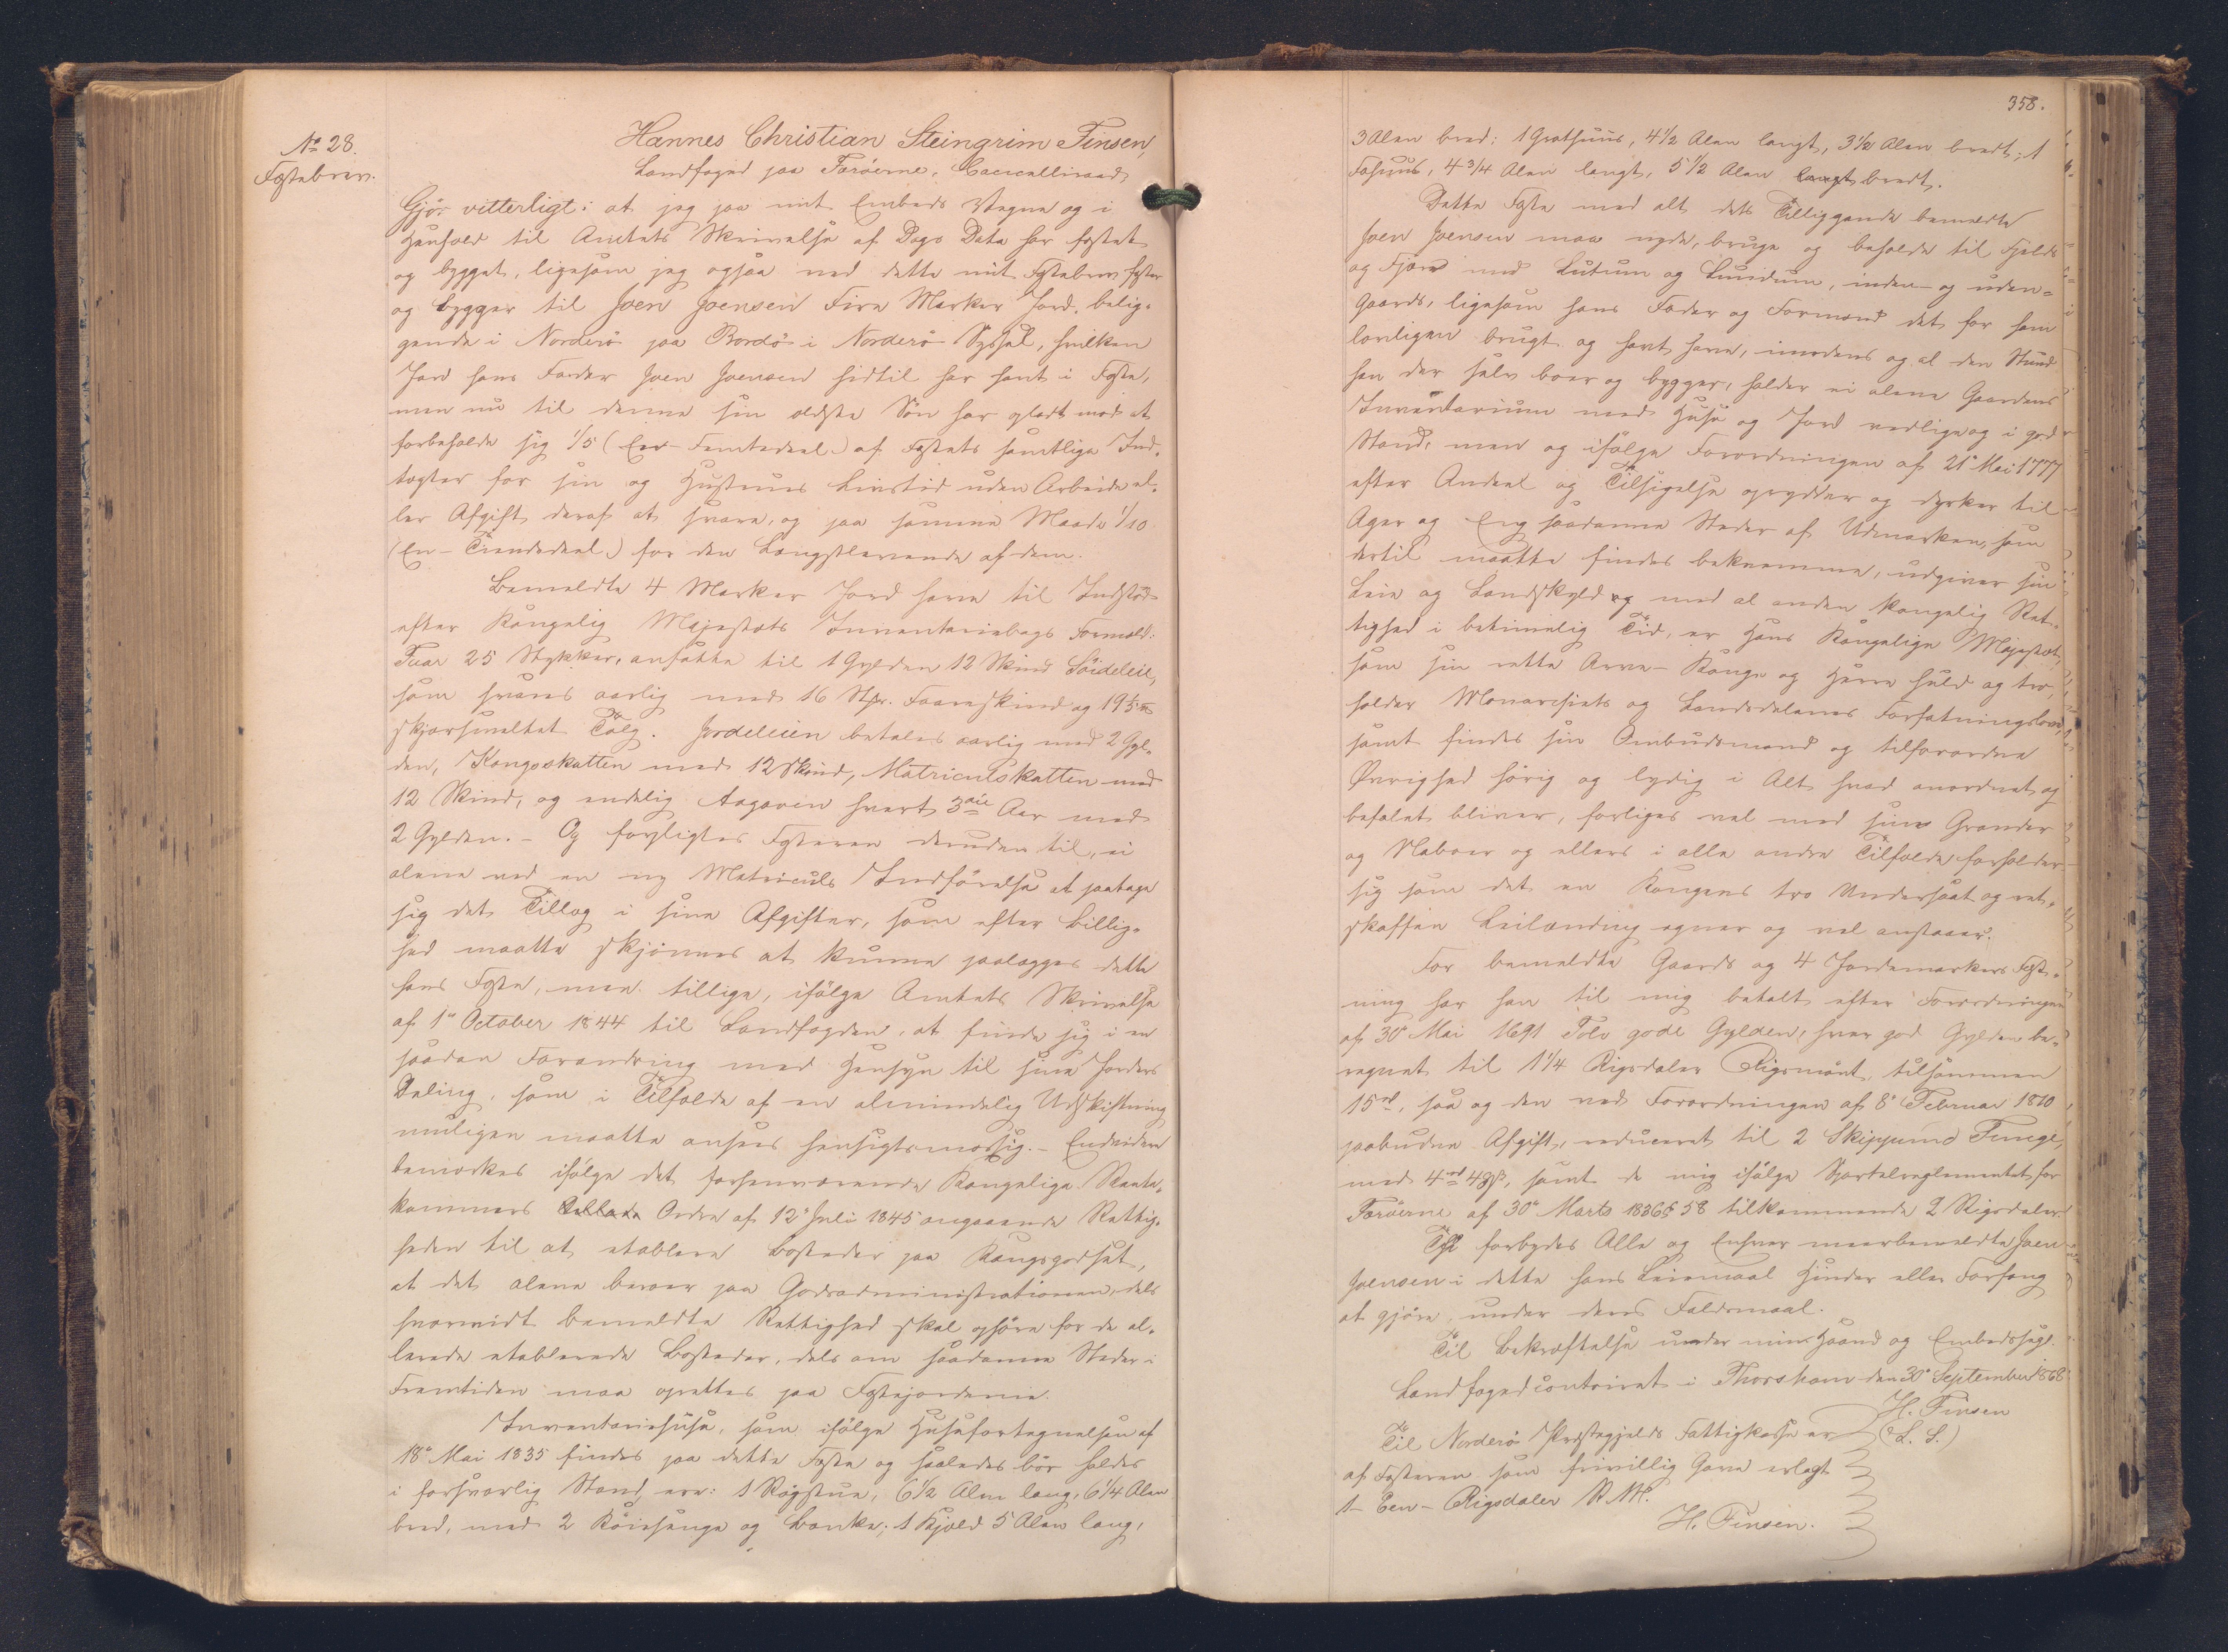 No 28.
Fæstebrev.
Hannes Christian Steingrim Finsen,
Landfoged paa Færöerne, Cancelliraad,
Gjör vitterligt: at jeg paa mit Embeds Vegne og i
Henhold til Amtets Skrivelse af Dags Dato har fæstet
og bygget, ligesom jeg ogsaa ved dette mit Fæstebrev fæster
og bygger til Joen Joensen Fire Marker Jord, belig-
gende i Norderö paa Bordö i Norderö Syssel, hvilken
Jord hans Fader Joen Joensen hidtil har havt i Fæste,
men nu til denne sin ældste Sön har opladt mod at
forbeholde sig 1/5 (Een Femtedeel) af Fæstets samtlige Ind-
tægter for sin og Hustrues Livstid uden Arbeide el-
ler Afgift deraf at svare, og paa samme Maade 1/10
(En-Tiendedeel) for den Længstlevende af dem.
Bemeldte 4 Marker Jord have til Indstöd
efter Kongelig Majestæts Inventariebogs Formeld:
Faar 25 Stykker, ansatte til 1 Gylden 12 Skind Söideleie,
som svares aarlig med 16 Stkr. Faareskind og 19 5/
skjærsmeltet Talg. Jordeleien betales aarlig med 2 Gyl-
den, Kongsskatten med 12 Skind, Matriculskatten med
12 Skind, og endelig Aagaven hvert 3die Aar med
2 Gylden. - Og forpligtes Fæsteren desuden til, ei
alene ved en ny Matriculs Indförelse at paatage
sig det Tillæg i sine Afgifter, som efter Billig-
hed maatte skjönnes at kunne paalægges dette
hans Fæste, men tillige, ifölge Amtets Skrivelse
af 1' October 1844 til Landfogden, at finde sig i en
saadan Forandring med Hensyn til sine Jorders
Deling, som i Tilfælde af en almindelig Udskiftning
muligen maatte ansees hensigtsmæssig. - Endvidere
bemærkes ifölge det forhenværende Kongelige Rente-
kammers Ordre af 12' Juli 1845 angaaende Rettig-
heden til at etablere Bosteder paa Kongsgodset,
at det alene beroer paa Godsadministrationen, dels
hvorvidt bemeldte Rettighed skal ophöre for de al-
lerede etablerede Bosteder, dels om saadanne Steder i
Fremtiden maa oprettes paa Fæstejorderne.
Inventariehuse, som ifölge Husefortegnelsen af
18' Mai 1835 findes paa dette Fæste og saaledes bör holdes
i forsvarlig Stand, ere: 1 Rögstue, 6 1/2 Alen lang, 6 1/4 Alen
bred, med 2 Köiesenge og Bænke; 1 Kjæld 5 Alen lang,
358.
3 Alen bred: 1 Grothuus, 4 1/2 Alen langt, 3 1/2 Alen bredt; 1
Fæhuus, 4 3/4 Alen langt, 5 1/2 Alen langt bredt.
Dette Fæste med alt dets Tilliggende bemeldte
Joen Joensen maa nyde, bruge og beholde til Fjelds
og Fjære med Lutum og Lundum, inden- og uden-
Gaards, ligesom hans Fader og Formænd det för ham
lovligen brugt og havt have, imedens og al den Stund
han der selv boer og bygger, holder ei alene Gaardens
Inventarium med Huse og Jord vedlige og i god
Stand, men og ifölge Forordningen af 21' Mai 1777
efter Andeel og Tilsigelse oprydder og dyrker til
Ager og Eng saadanne Steder af Udmarken, som
dertil maatte findes bekvemme, udgiver sin
Leie og Landskyld og med al anden Kongelig Ret-
tighed i betimelig Tid, er Hans Kongelige Majestæt,
som sin rette Arve-Konge og Herre huld og tro,
holder Monarchiets og Landsdelenes Forfatningslove,
samt findes sin Ombudsmand og tilforordnede
Övrighed hörig og lydig i Alt hvad anordnet og
befalet bliver, forliges vel med sine Grander
og Naboer og ellers i alle andre Tilfælde forholder
sig som det en Kongens tro Undersaat og ret-
skaffen Leilænding egner og vel anstaaer.
For bemeldte Gaards og 4 Jordemarkers Fæst-
ning har han til mig betalt efter Forordningen
af 30' Mai 1691 Tolv gode Gylden, hver god Gylden be-
regnet til 1 1/4 Rigsdaler Rigsmönt, tilsammen
15 rd, saa og den ved Forordningen af 8' Februar 1810
paabudne Afgift, reduceret til 2 Skippund Tunge,
med 4 rd 48 ß, samt de mig ifölge Sportelreglementet for
Færöerne af 30' Marts 1836 § 58 tilkommende 2 Rigsdaler.
Thi forbydes Alle og Enhver meerbemeldte Joen
Joensen i dette hans Leiemaal Hinder eller Forfang
at gjöre, under deres Faldsmaal.
Til Bekræftelse under min Haand og Embedssegl.
Landfogedcontoiret i Thorshavn den 30' September 1868
H. Finsen
(L. S.)
Til Norderö Præstegjelds Fattigkasse er
af Fæsteren som frivillig Gave erlagt
1 - Een - Rigsdaler R.M.
H. Finsen.